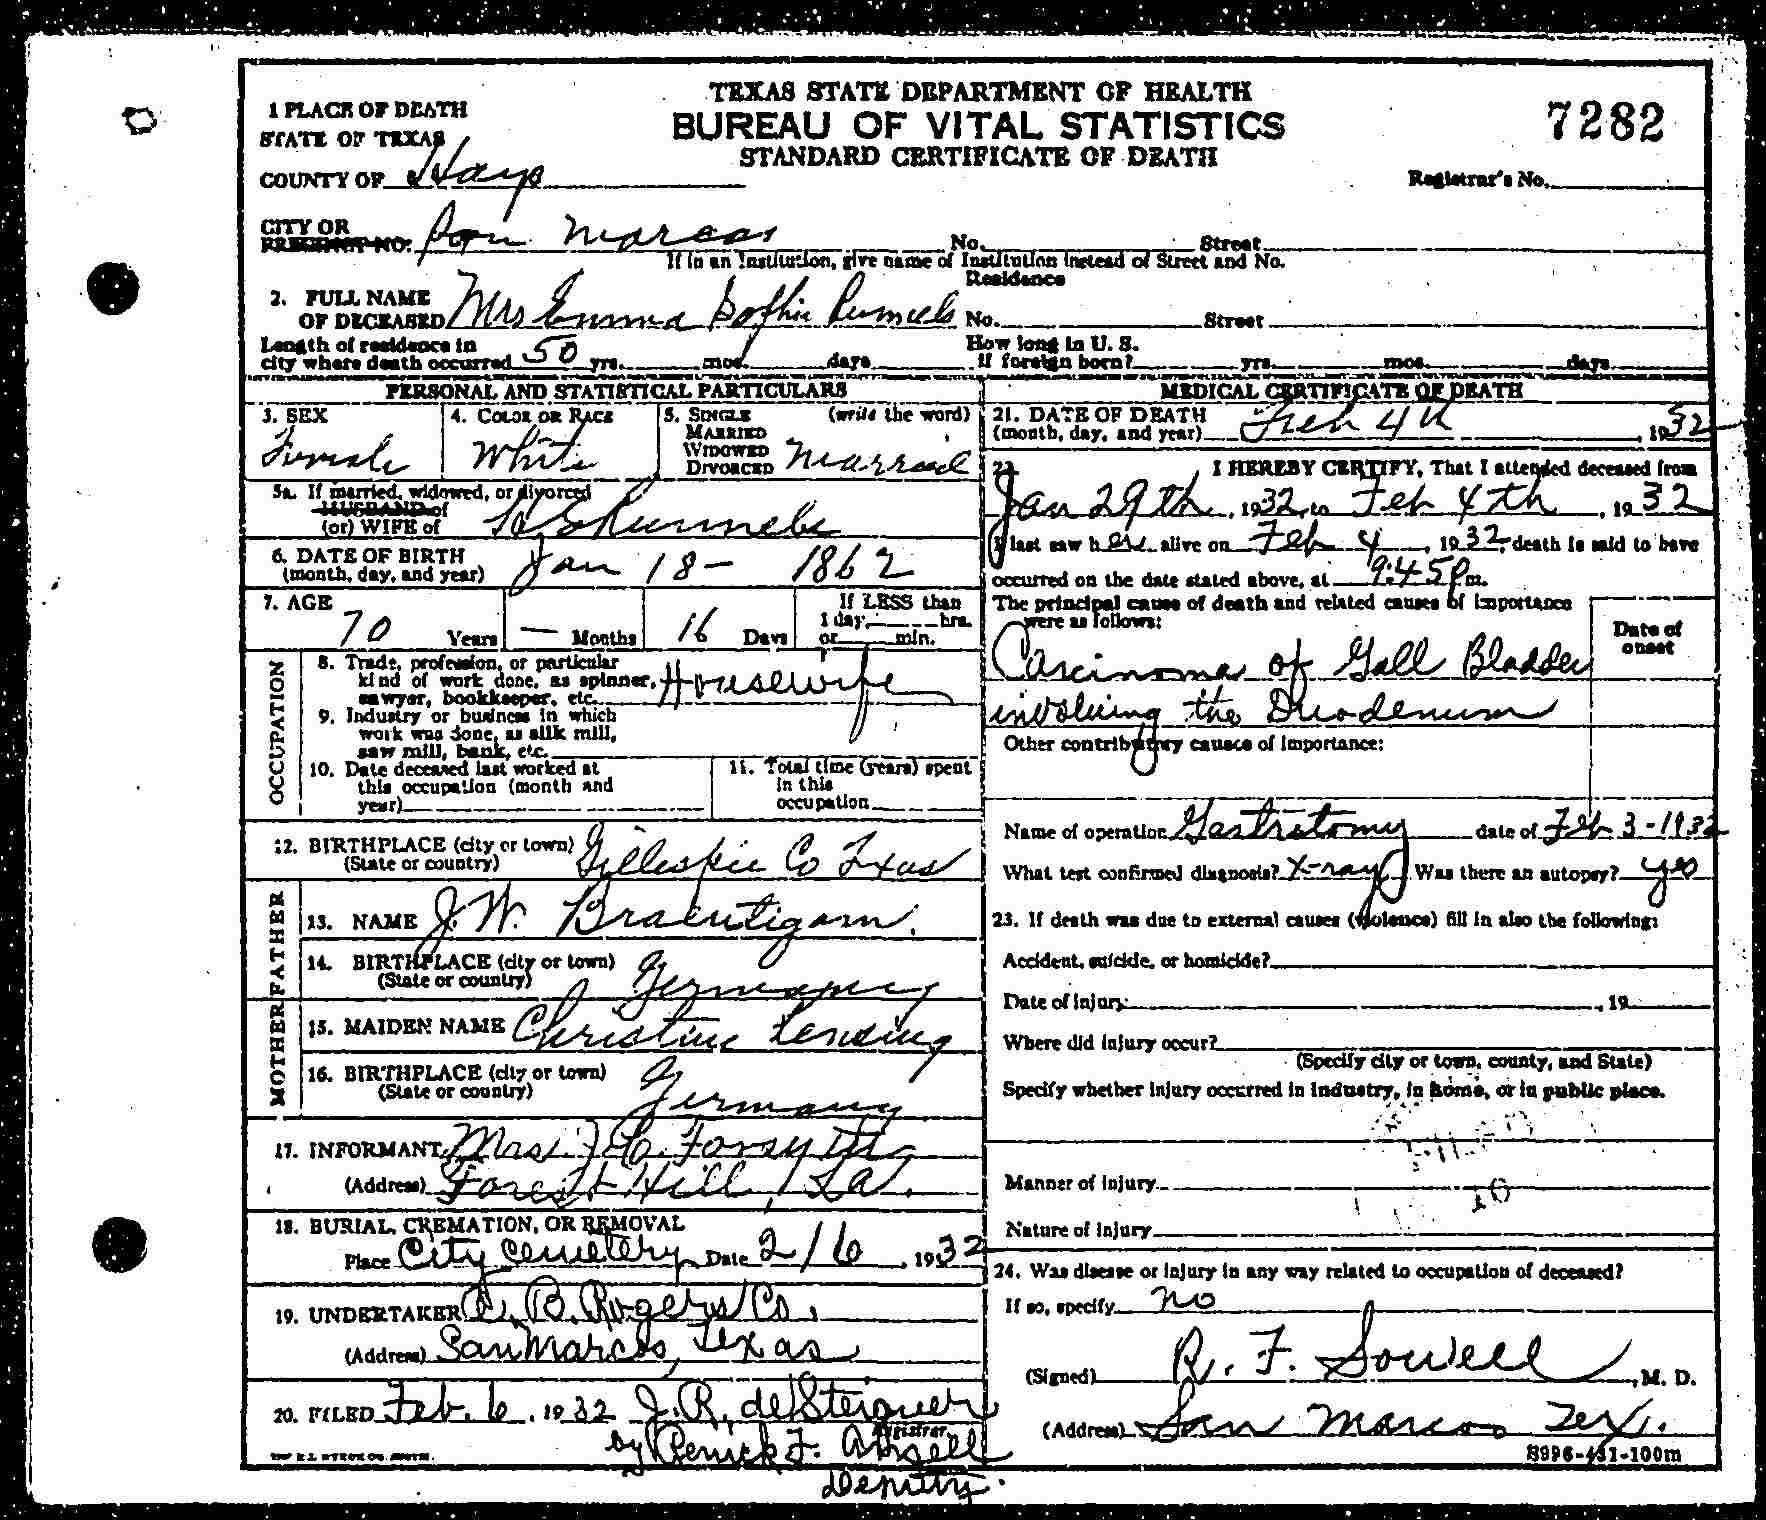 TEXAS STATE DEPARTMENT OF HEALTH
BUREAU OF VITAL STATISTICS
STANDARD CERTIFICATE OF DEATH
7282
1 PLACE OF DEATH
STATE OF TEXAS
COUNTY OF Hays
Registrar's No.
CITY OR
PRECINCT NO. San Marcos No. Street
If in an Institution, give name of Institution instead of Street and No.
Residence
2. FULL NAME
OF DECEASED Mrs Emma Sophie No. Street
Length of residence in
city where death occurred 50 yrs. mos. days
How long in U. S.
if foreign born? yrs. mos. days
PERSONAL AND STATISTICAL PARTICULARS
3. SEX
Female
4. COLOR OR RACE
White
5. SINGLE (write the word)
MARRIED
WIDOWED
DIVORCED Married
5a. If married, widowed, or divorced
HUSBAND of
(or) WIFE of
6. DATE OF BIRTH
(month, day, and year) Jan 18 - 1862
7. AGE
70 Years — Months 16 Days
If LESS than
1 day, hrs.
or min.
OCCUPATION
8. Trade, profession, or particular
kind of work done, as spinner,
sawyer, bookkeeper, etc. Housewife
9. Industry or business in which
work was done, as silk mill,
saw mill, bank, etc.
10. Date deceased last worked at
this occupation (month and
year)
11. Total time (years) spent
in this
occupation
12. BIRTHPLACE (city or town) Gillespie Co Texas
(State or country)
FATHER
13. NAME J. W. Braeutigam.
14. BIRTHPLACE (city or town) Germany
(State or country)
MOTHER
15. MAIDEN NAME Christine Lensing
16. BIRTHPLACE (city or town) Germany
(State or country)
17. INFORMANT Mrs. Forsyth
(Address) Forest Hill, La.
18. BURIAL, CREMATION, OR REMOVAL
Place City Cemetery Date 2/6, 1932
19. UNDERTAKER C. B. Rogers Co.
(Address) San Marcos, Texas
20. FILED Feb. 6, 1932 J. R. de Steiguer
Registrar
by F.
Deputy.
MEDICAL CERTIFICATE OF DEATH
21. DATE OF DEATH
(month, day, and year) Feb 4th, 1932
22. I HEREBY CERTIFY, That I attended deceased from
Jan 29th, 1932, to Feb 4th, 1932
I last saw her alive on Feb 4, 1932, death is said to have
occurred on the date stated above, at 9:45 P m.
The principal cause of death and related causes of importance
were as follows:
Date of
onset
Carcinoma of Gall Bladder
involving the Duodenum
Other contributory causes of importance:
Name of operation Gastrotomy date of Feb 3-1932
What test confirmed diagnosis? X-ray Was there an autopsy? yes
23. If death was due to external causes (violence) fill in also the following:
Accident, suicide, or homicide?
Date of injury , 19
Where did injury occur?
(Specify city or town, county, and State)
Specify whether injury occurred in industry, in home, or in public place.
Manner of injury
Nature of injury
24. Was disease or injury in any way related to occupation of deceased?
If so, specify no
(Signed) R. F. Sowell, M. D.
(Address) San Marcos Tex.
S996-431-100m